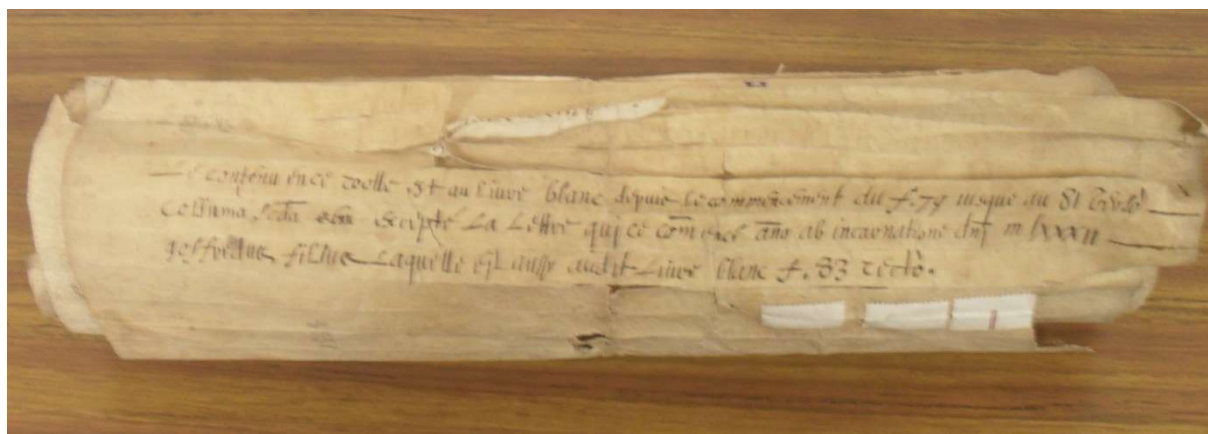 Le contenu en ce rolle est au livre blanc depuis le commencement du f. 79 usque au 81 verso
columna scda excepté La Lettre qui ce comence año ab incarnatione dnj m lxxxii
goffredus fillius Laquelle est aussy audit Livre blanc f. 83 recto.